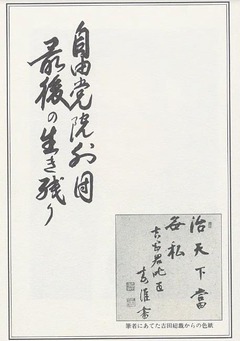 自由党院外団
最後の生き残り
治天下當
無私
吉田君此正
書
筆者にあてた吉田総裁からの色紙